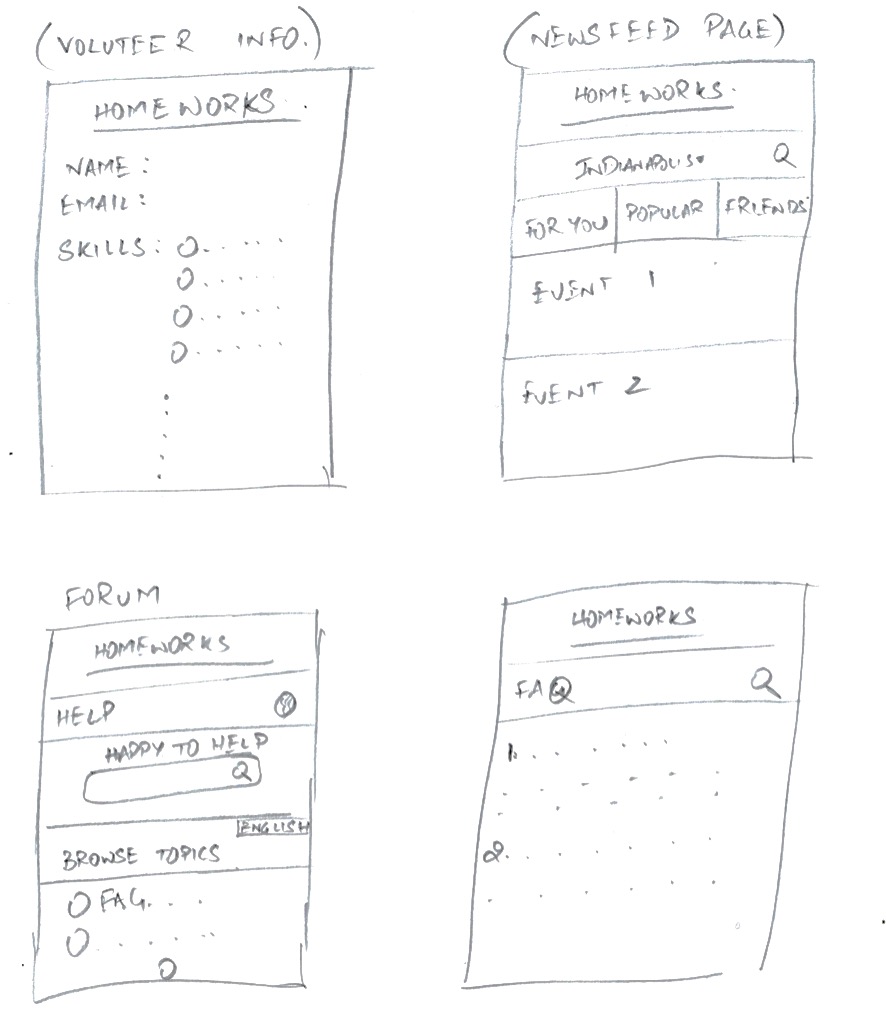 (VOLUTEER INFO.)
HOMEWORKS.
NAME:
EMAIL:
SKILLS:
(NEWSFEED PAGE)
HOMEWORKS.
INDIANAPOLIS.
FOR YOU POPULAR FRIENDS
EVENT 1
EVENT 2
FORUM
HOMEWORKS
HELP
HAPPY TO HELP
ENGLISH
BROWSE TOPICS
FAQ...
HOMEWORKS
FAQ
1.
2.